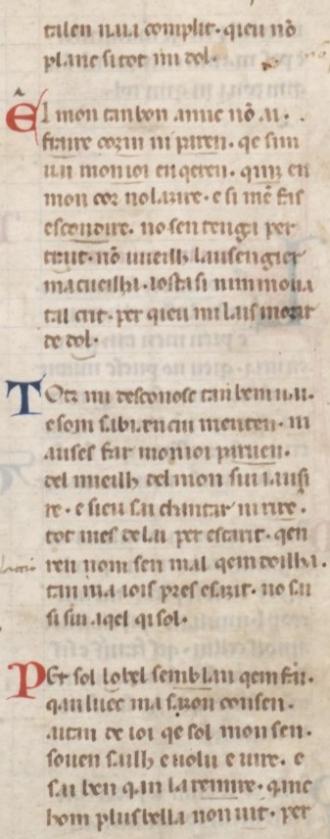 talen uaia complir. qieu nõ
planc si tot mi dol.
El mon tan bon amic nõ ai.
fraire cozin ni paren. qe sim
uai mon ioi enqeren. qinz en
mon cor nol azire. e si mē fas
escondire. no sen tengа per
trait. nõ uueilh lausengier
ma cueilha. iosta si nim moua
tal crit. per qieu mi lais morir
de dol.
Totz mi desconosc tan bem uai.
e som sabi
menten. ni
auses far mon ioi paruen.
del mieilh del mon sui iausi
re. e sieu sai chantar ni rire.
tot mes de lai per escarit. qen
ren nom sen mal qem doilha.
tan ma iois pres e sazit. no sai
si sui aqel qi sol.
Per sol lo bel semblan qem fai.
qan luec ma sazon consen.
aitan de ioi qe sol mon sen.
souen salh e uolu e uire. e
sai ben qan la remire. qanc
hom plus bella non uit. per